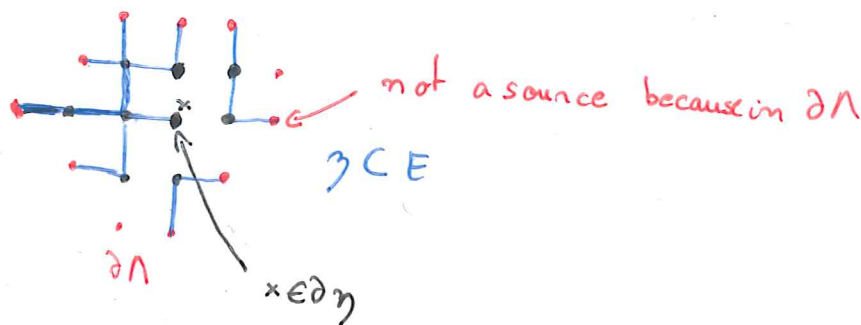 x
not a source because in ∂Λ
η ⊂ E
∂Λ
x ∈ ∂η